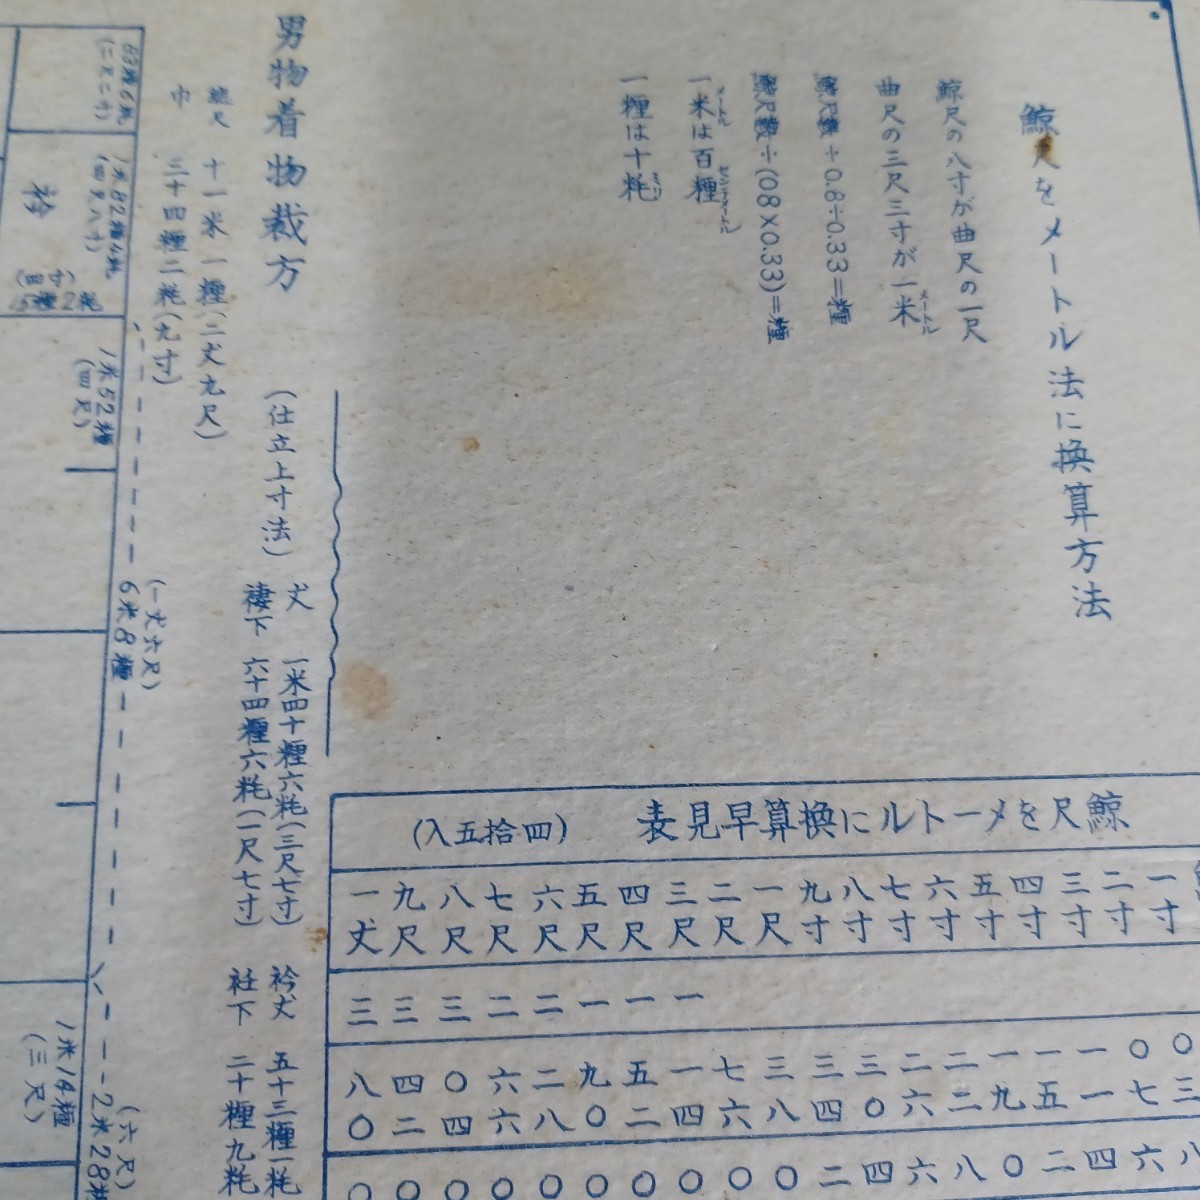 鯨尺をメートル法に換算方法
鯨尺の八寸が曲尺の一尺
曲尺の三尺三寸が一米
メートル
÷0.8÷0.33=糎
÷(0.8×0.33)=糎
一米は百糎
メートル センチメートル
一糎は十粍
ミリ
男物着物裁方
(仕立上寸法)
丈 一米四十糎六粍(三尺七寸)
褄下 六十四糎六粍(一尺七寸)
衿丈 五十三糎一粍
衽下 二十糎九粍
総尺 十一米一糎(二丈九尺)
巾 三十四糎二粍(九寸)
(二尺二寸)
1米82糎4粍
(四尺八寸)
衿
15糎2粍
1米52糎
(四尺)
(一丈六尺)
6米8糎
1米14糎
(三尺)
(六尺)
2米28糎
鯨尺をメートルに換算早見表 (四拾五入)
一寸 二寸 三寸 四寸 五寸 六寸 七寸 八寸 九寸 一尺 二尺 三尺 四尺 五尺 六尺 七尺 八尺 九尺 一丈
一 一 一 二 二 三 三 三
〇 〇 一 一 一 二 二 三 三 三 七 一 五 九 二 六 〇 四 八
三 七 一 五 九 二 六 〇 四 八 六 四 二 〇 八 六 四 二 〇
八 六 四 二 〇 八 六 四 二 〇 〇 〇 〇 〇 〇 〇 〇 〇 〇